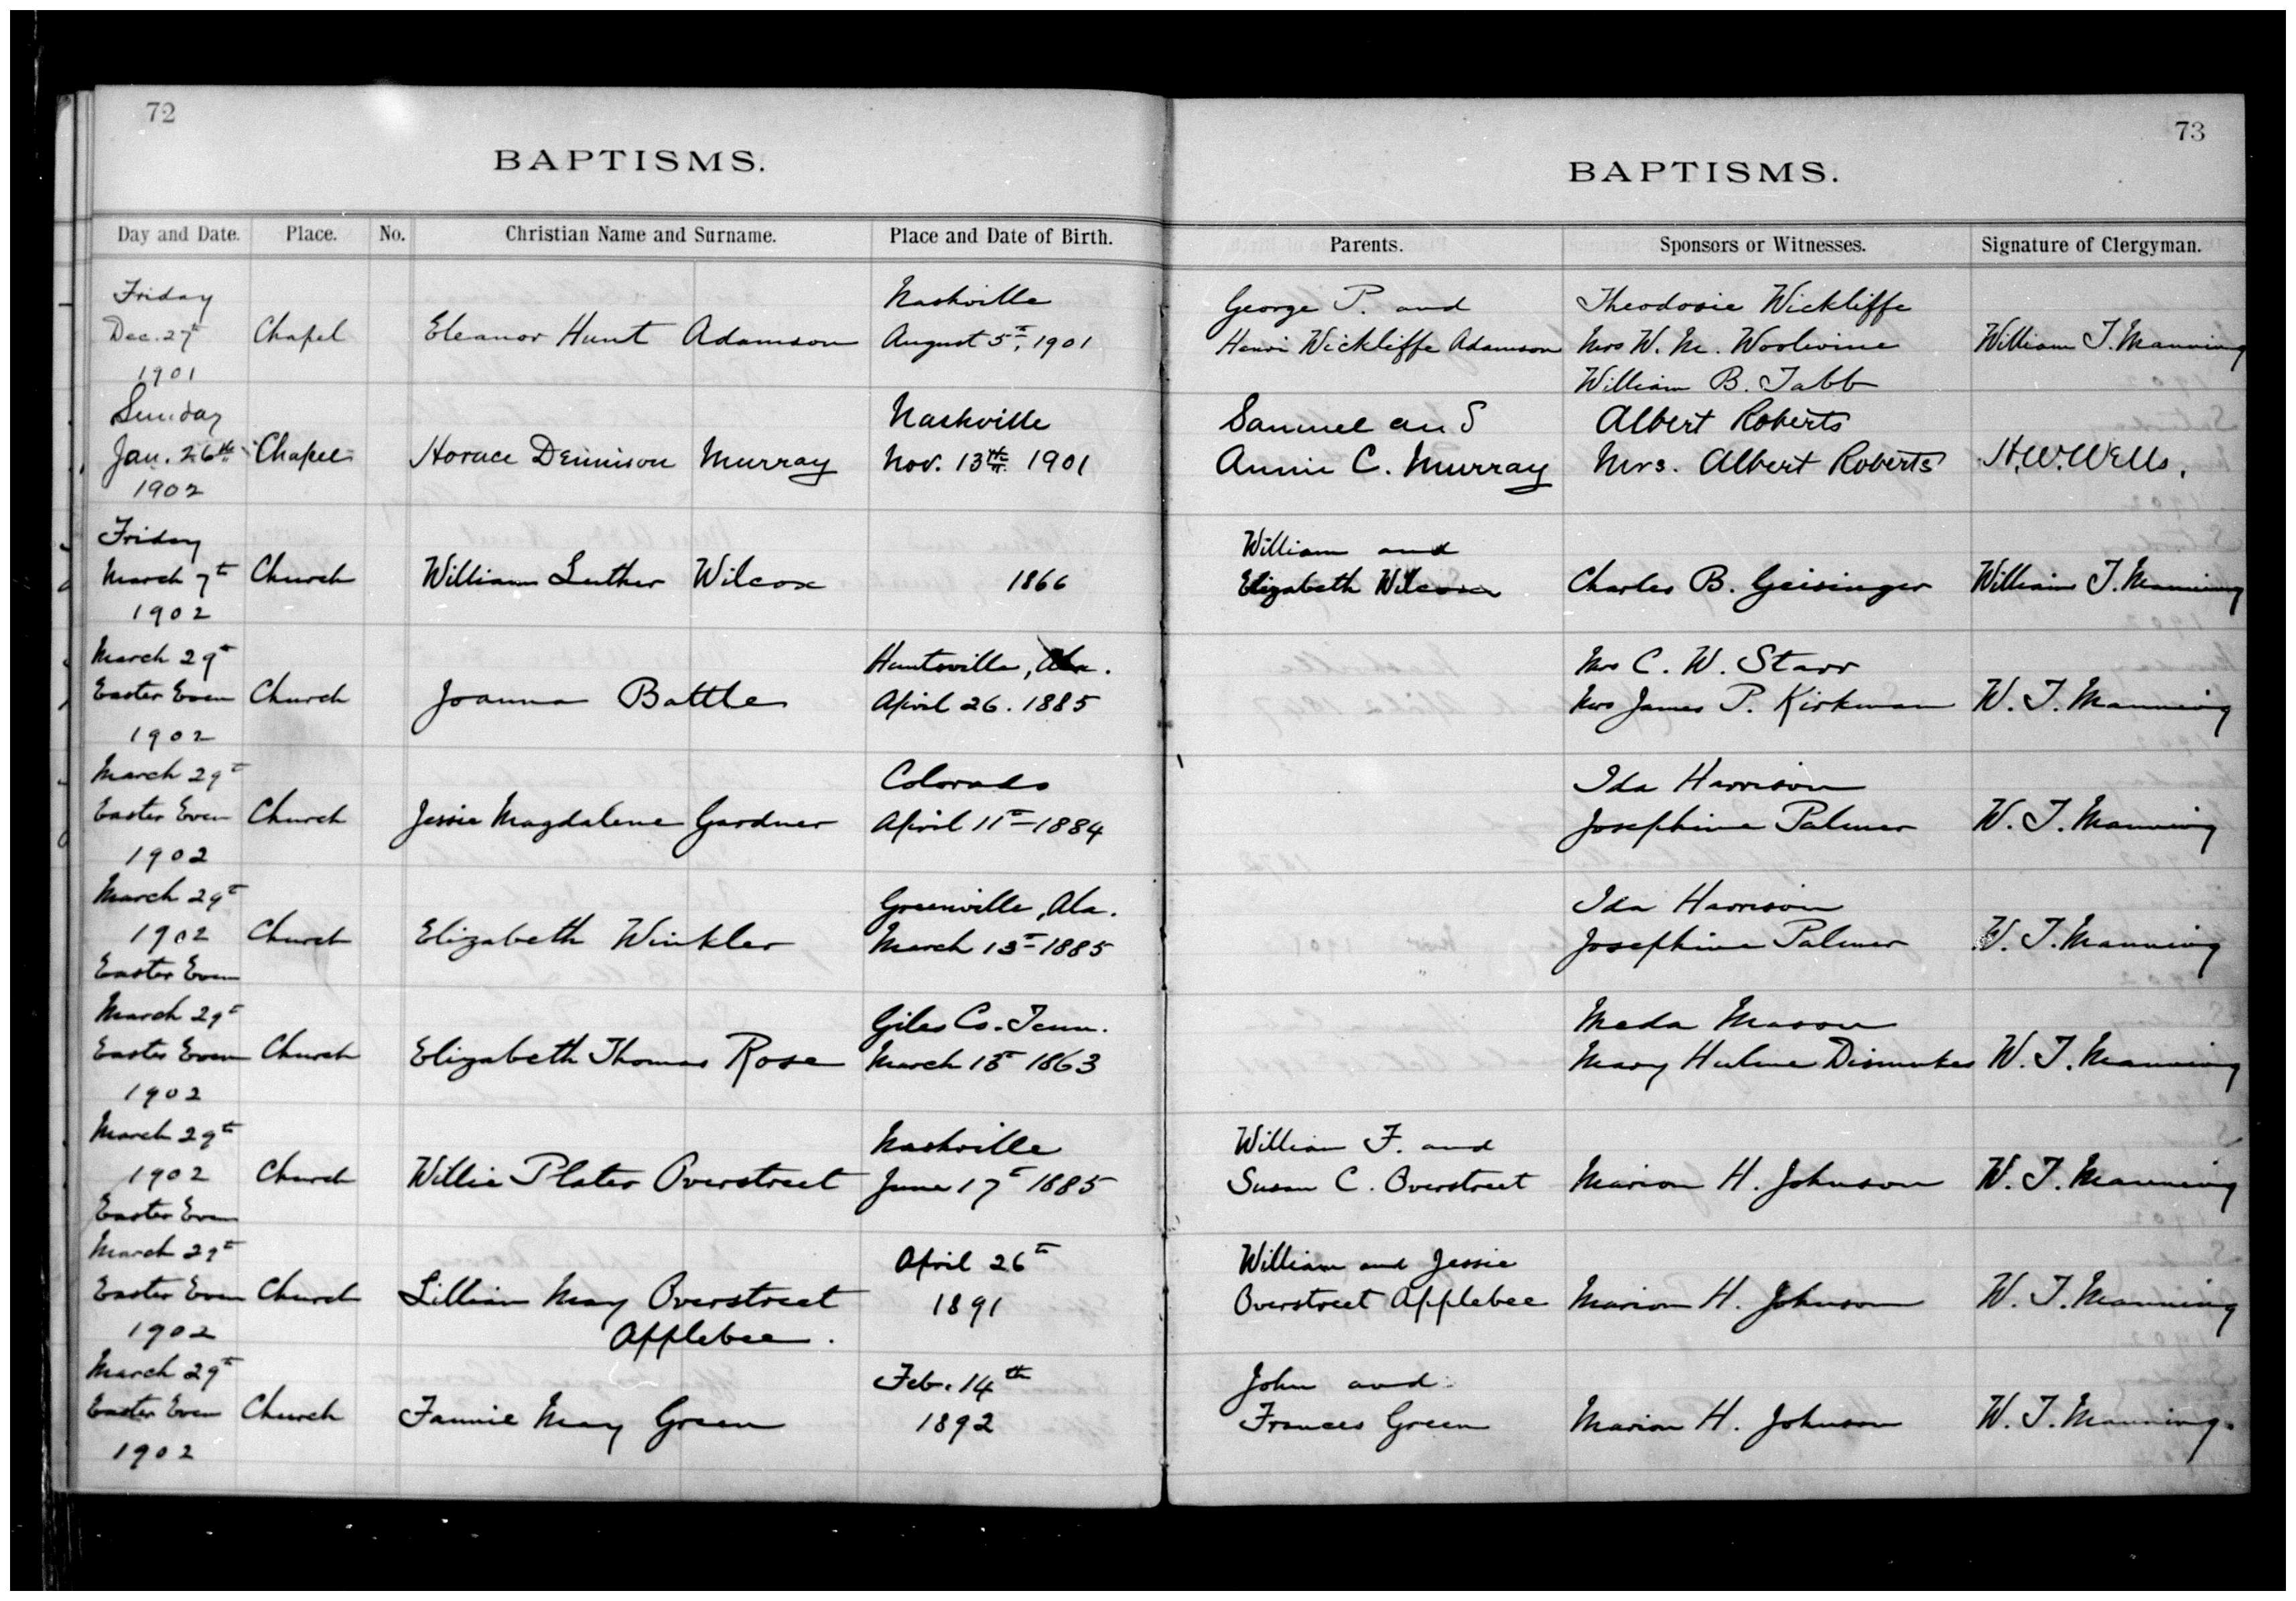 72
BAPTISMS.
Day and Date. Place. No. Christian Name and Surname. Place and Date of Birth.
Friday Nashville
Dec. 27th Chapel Eleanor Hunt Adamson August 5th, 1901
1901
Sunday Nashville
Jan. 26th Chapel Horace Dennison Murray Nov. 13th 1901
1902
Friday
March 7th Church William Luther Wilcox 1866
1902
March 29th Huntsville, Ala.
Easter Even Church Joanna Battle April 26. 1885
1902
March 29th Colorado
Easter Even Church Jessie Magdalene Gardner April 11th 1884
1902
March 29th Greenville, Ala.
1902 Church Elizabeth Winkler March 13th 1885
Easter Even
March 29th Giles Co. Tenn.
Easter Even Church Elizabeth Thomas Rose March 1863
1902
March 29th Nashville
1902 Church Willie Plater Overstreet June 17th 1885
Easter Even
March 29th April 26th
Easter Even Church Lillian May Overstreet 1891
1902 Applebee.
March 29th Feb. 14th
Easter Even Church Fannie May Green 1892
1902
73
BAPTISMS.
Parents. Sponsors or Witnesses. Signature of Clergyman.
George P. and Theodosie Wickliffe
Wickliffe Adamson Mrs W. M. Woolwine William T. Manning
William B. Tabb
Samuel and Albert Roberts
Annie C. Murray Mrs. Albert Roberts H. W. Wells.
William and
Elizabeth Wilcox Charles B. Geisinger William T. Manning
Mrs C. W. Starr
Mrs James P. Kirkman W. T. Manning
Ida Harrison
Josephine Palmer W. T. Manning
Ida Harrison
Josephine Palmer W. T. Manning
Meda Mason
Mary Hulme Dismukes W. T. Manning
William F. and
Susan C. Overstreet Marion H. Johnson W. T. Manning
William and Jessie
Overstreet Applebee Marion H. Johnson W. T. Manning
John and
Frances Green Marion H. Johnson W. T. Manning.